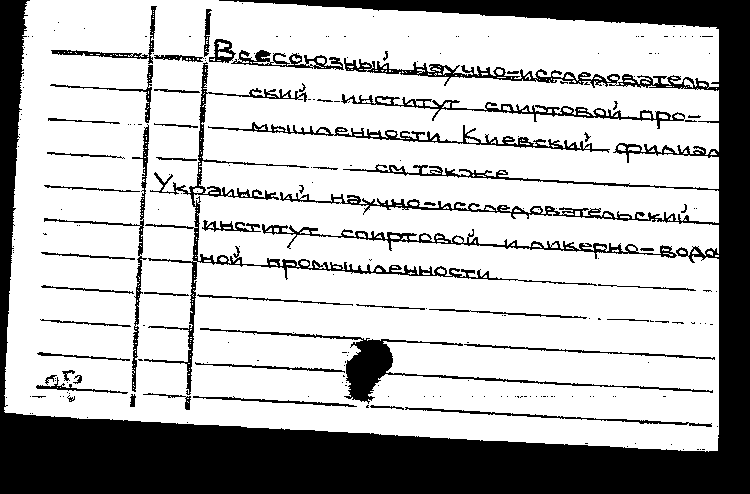 Всесоюзный научно-исследователь-
ский институт спиртовой про-
мышленности. Киевский филиал
см. также
Украинский научно-исследовательский
институт спиртовой и ликерно-водоч
ной промышленности.